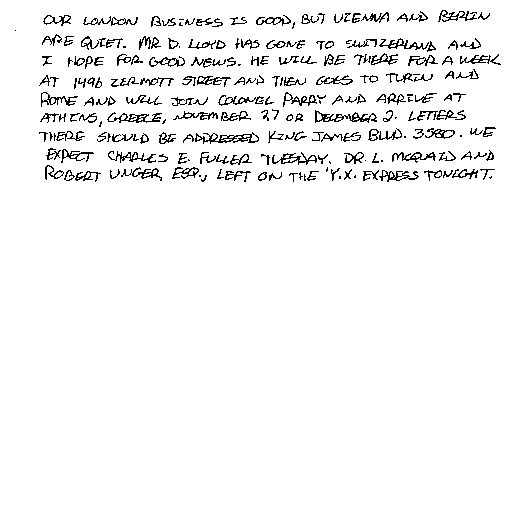 OUR LONDON BUSINESS IS GOOD, BUT VIENNA AND BERLIN
ARE QUIET. MR D. LLOYD HAS GONE TO SWITZERLAND AND
I HOPE FOR GOOD NEWS. HE WILL BE THERE FOR A WEEK
AT 1496 ZERMOTT STREET AND THEN GOES TO TURIN AND
ROME AND WILL JOIN COLONEL PARRY AND ARRIVE AT
ATHENS, GREECE, NOVEMBER 27 OR DECEMBER 2. LETTERS
THERE SHOULD BE ADDRESSED KING JAMES BLVD. 3580. WE
EXPECT CHARLES E. FULLER TUESDAY. DR. L. MCQUAID AND
ROBERT UNGER, ESQ., LEFT ON THE 'Y.X. EXPRESS TONIGHT.